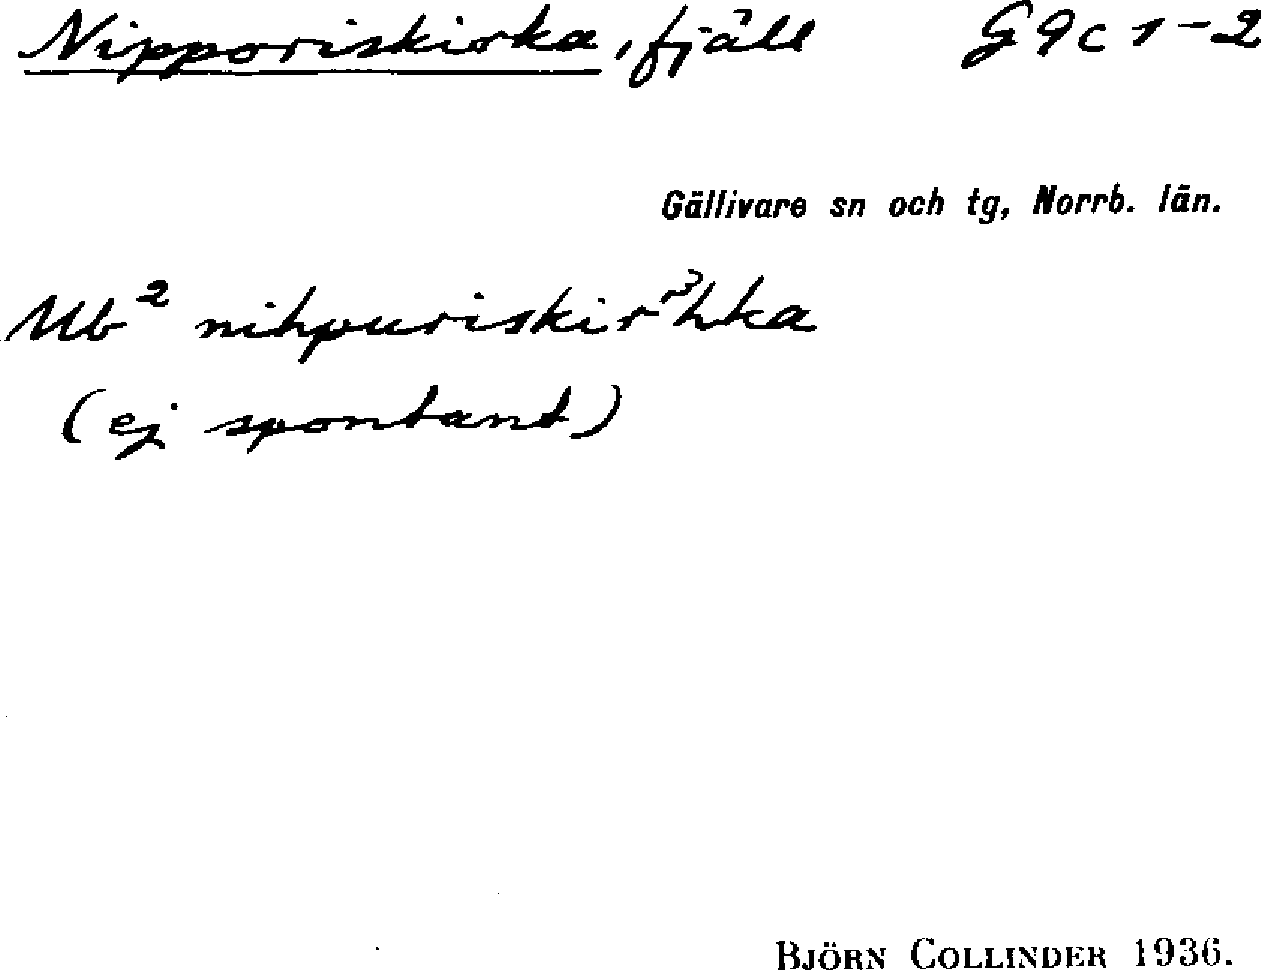 Nipporiskirka, fjäll G9c 1-2
Gällivare sn och tg, Norrb. län.
Ub² nihpuriskirˀhka
(ej spontant)
BJÖRN COLLINDER 1936.